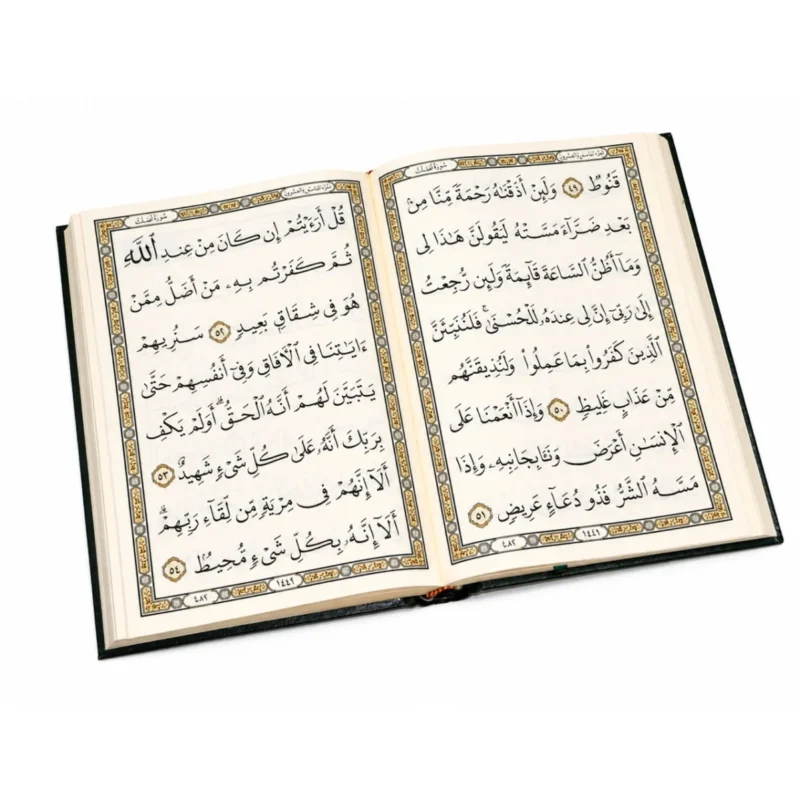 سُورَةُ فُصِّلَت الجزء الخامس والعشرون
قَنُوطٌ ٤٩ وَلَئِنْ أَذَقْنَٰهُ رَحْمَةً مِّنَّا مِنْ
بَعْدِ ضَرَّآءَ مَسَّتْهُ لَيَقُولَنَّ هَٰذَا لِى
وَمَآ أَظُنُّ ٱلسَّاعَةَ قَآئِمَةً وَلَئِن رُّجِعْتُ
إِلَىٰ رَبِّىٓ إِنَّ لِى عِندَهُۥ لَلْحُسْنَىٰ ۚ فَلَنُنَبِّئَنَّ
ٱلَّذِينَ كَفَرُوا۟ بِمَا عَمِلُوا۟ وَلَنُذِيقَنَّهُم
مِّنْ عَذَابٍ غَلِيظٍ ٥٠ وَإِذَآ أَنْعَمْنَا عَلَى
ٱلْإِنسَٰنِ أَعْرَضَ وَنَـَٔا بِجَانِبِهِۦ وَإِذَا
مَسَّهُ ٱلشَّرُّ فَذُو دُعَآءٍ عَرِيضٍ ٥١
٤٨٢
سُورَةُ فُصِّلَت الجزء الخامس والعشرون
قُلْ أَرَءَيْتُمْ إِن كَانَ مِنْ عِندِ ٱللَّهِ
ثُمَّ كَفَرْتُم بِهِۦ مَنْ أَضَلُّ مِمَّنْ
هُوَ فِى شِقَاقٍ بَعِيدٍ ٥٢ سَنُرِيهِمْ
ءَايَٰتِنَا فِى ٱلْءَافَاقِ وَفِىٓ أَنفُسِهِمْ حَتَّىٰ
يَتَبَيَّنَ لَهُمْ أَنَّهُ ٱلْحَقُّ ۗ أَوَلَمْ يَكْفِ
بِرَبِّكَ أَنَّهُۥ عَلَىٰ كُلِّ شَىْءٍ شَهِيدٌ ٥٣
أَلَآ إِنَّهُمْ فِى مِرْيَةٍ مِّن لِّقَآءِ رَبِّهِمْ ۗ
أَلَآ إِنَّهُۥ بِكُلِّ شَىْءٍ مُّحِيطٌۢ ٥٤
٤٨٢